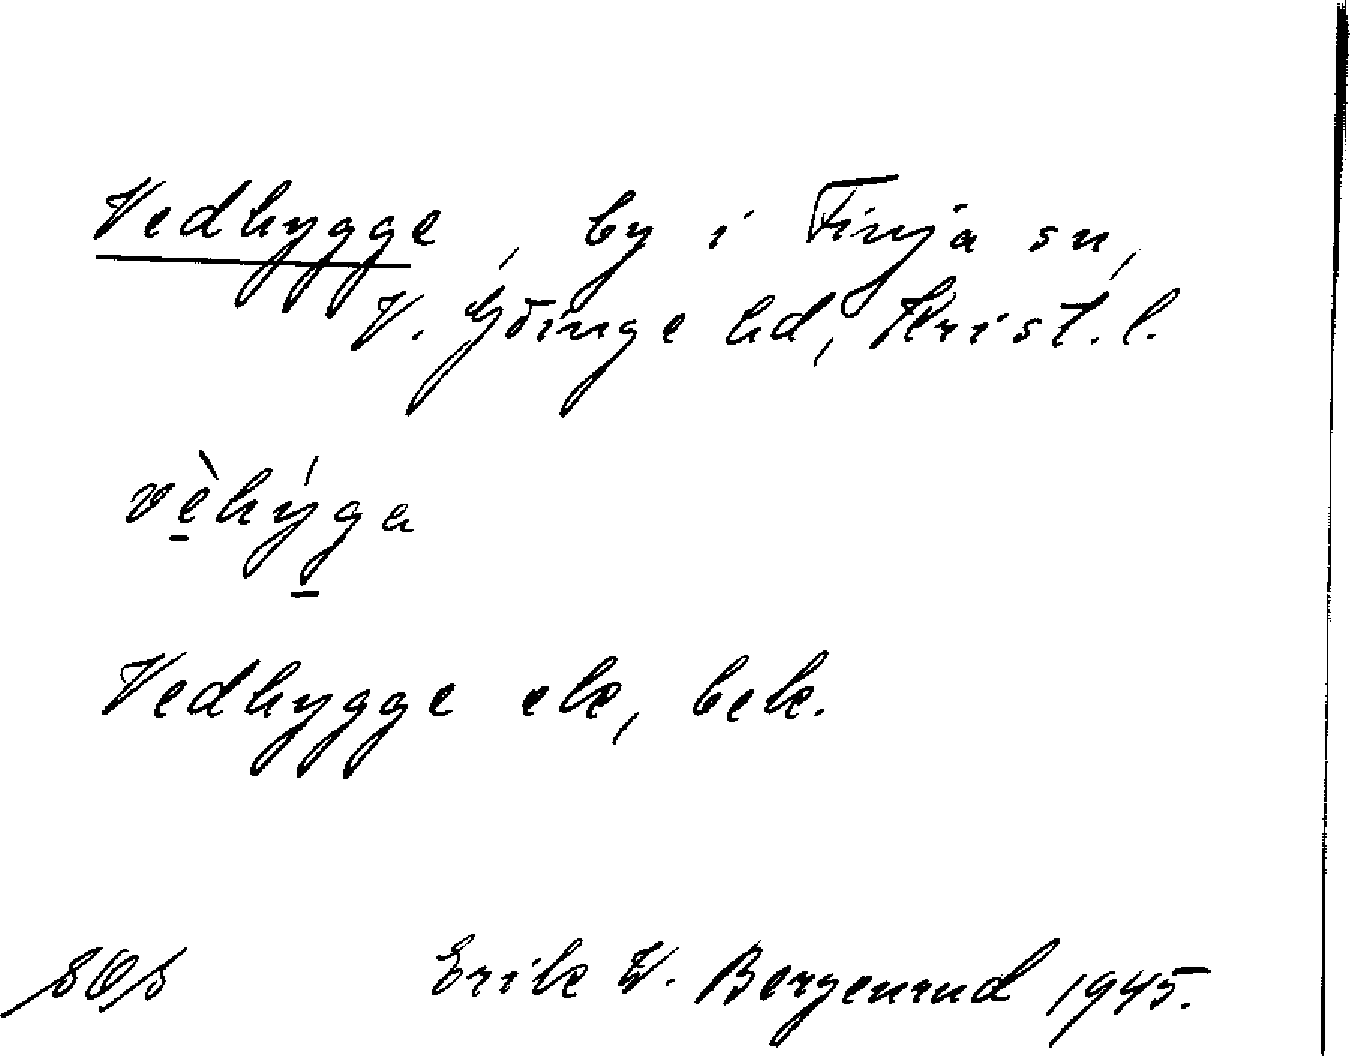 Vedhygge, by i Finja sn,
V. Göinge hd, Krist. l.
vèhýga
Vedhygge ek, bek.
SOS Erik W. Bergenrud 1945.